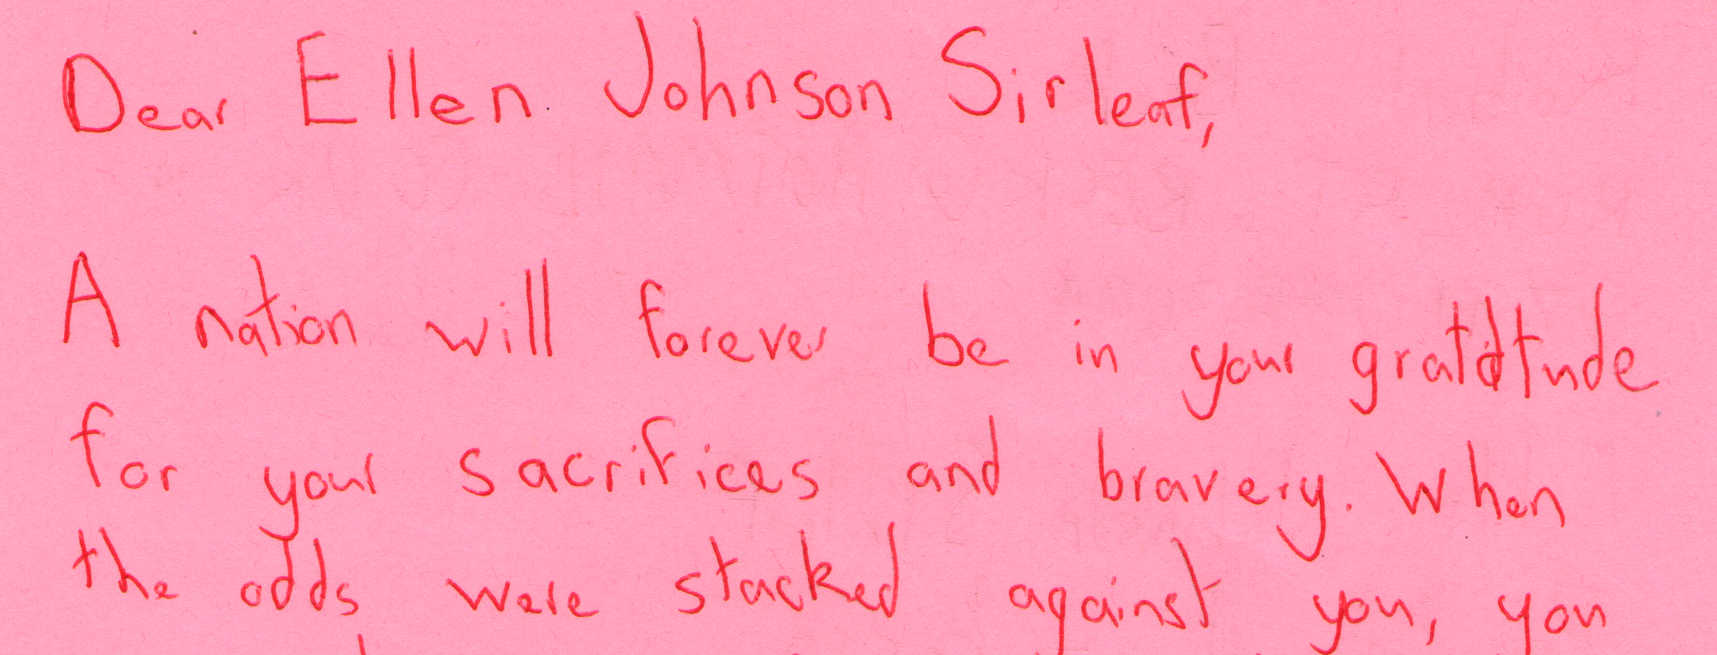 Dear Ellen Johnson Sirleaf,
A nation will forever be in your gratitude
for your sacrifices and bravery. When
the odds were stacked against you, you